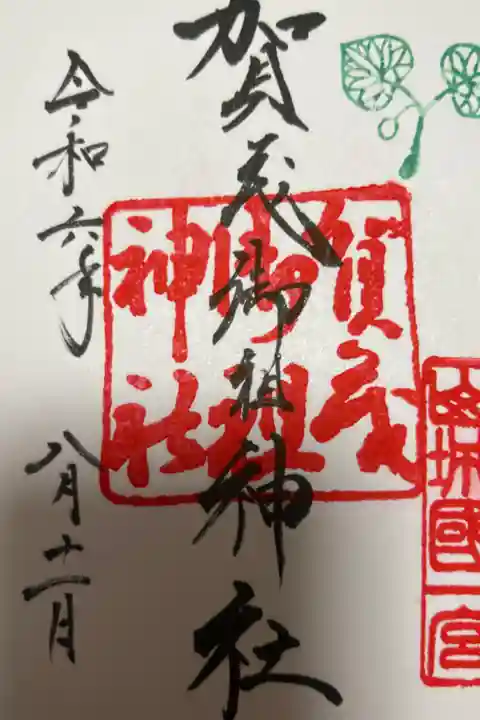 山城國一宮
賀茂御祖神社
賀茂
御祖
神社
令和六年 八月十一日